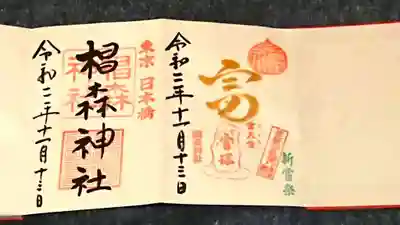 富
令和二年十一月十三日
新嘗祭
東京 日本橋
椙森神社
椙森
神社
令和二年十一月十三日